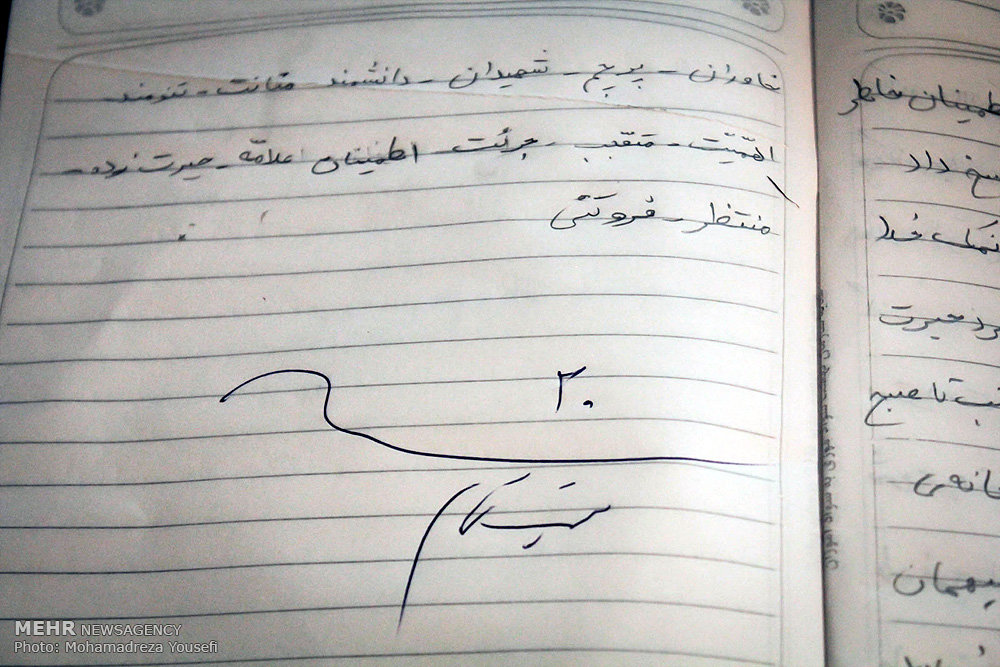 خاوران - پرچم - شهیدان - دانشمند متانت - تنومند
اهمّیّت - متعّجب - جرئت اطمینان علامّه - حیرت زده -
منتظر - فروتنی
۲۰
طمینان خاطر
سخ داد
نمک خدا
رد حیرت
شب تا صبح
خانمی
یهمان
MEHR NEWSAGENCY
Photo: Mohamadreza Yousefi